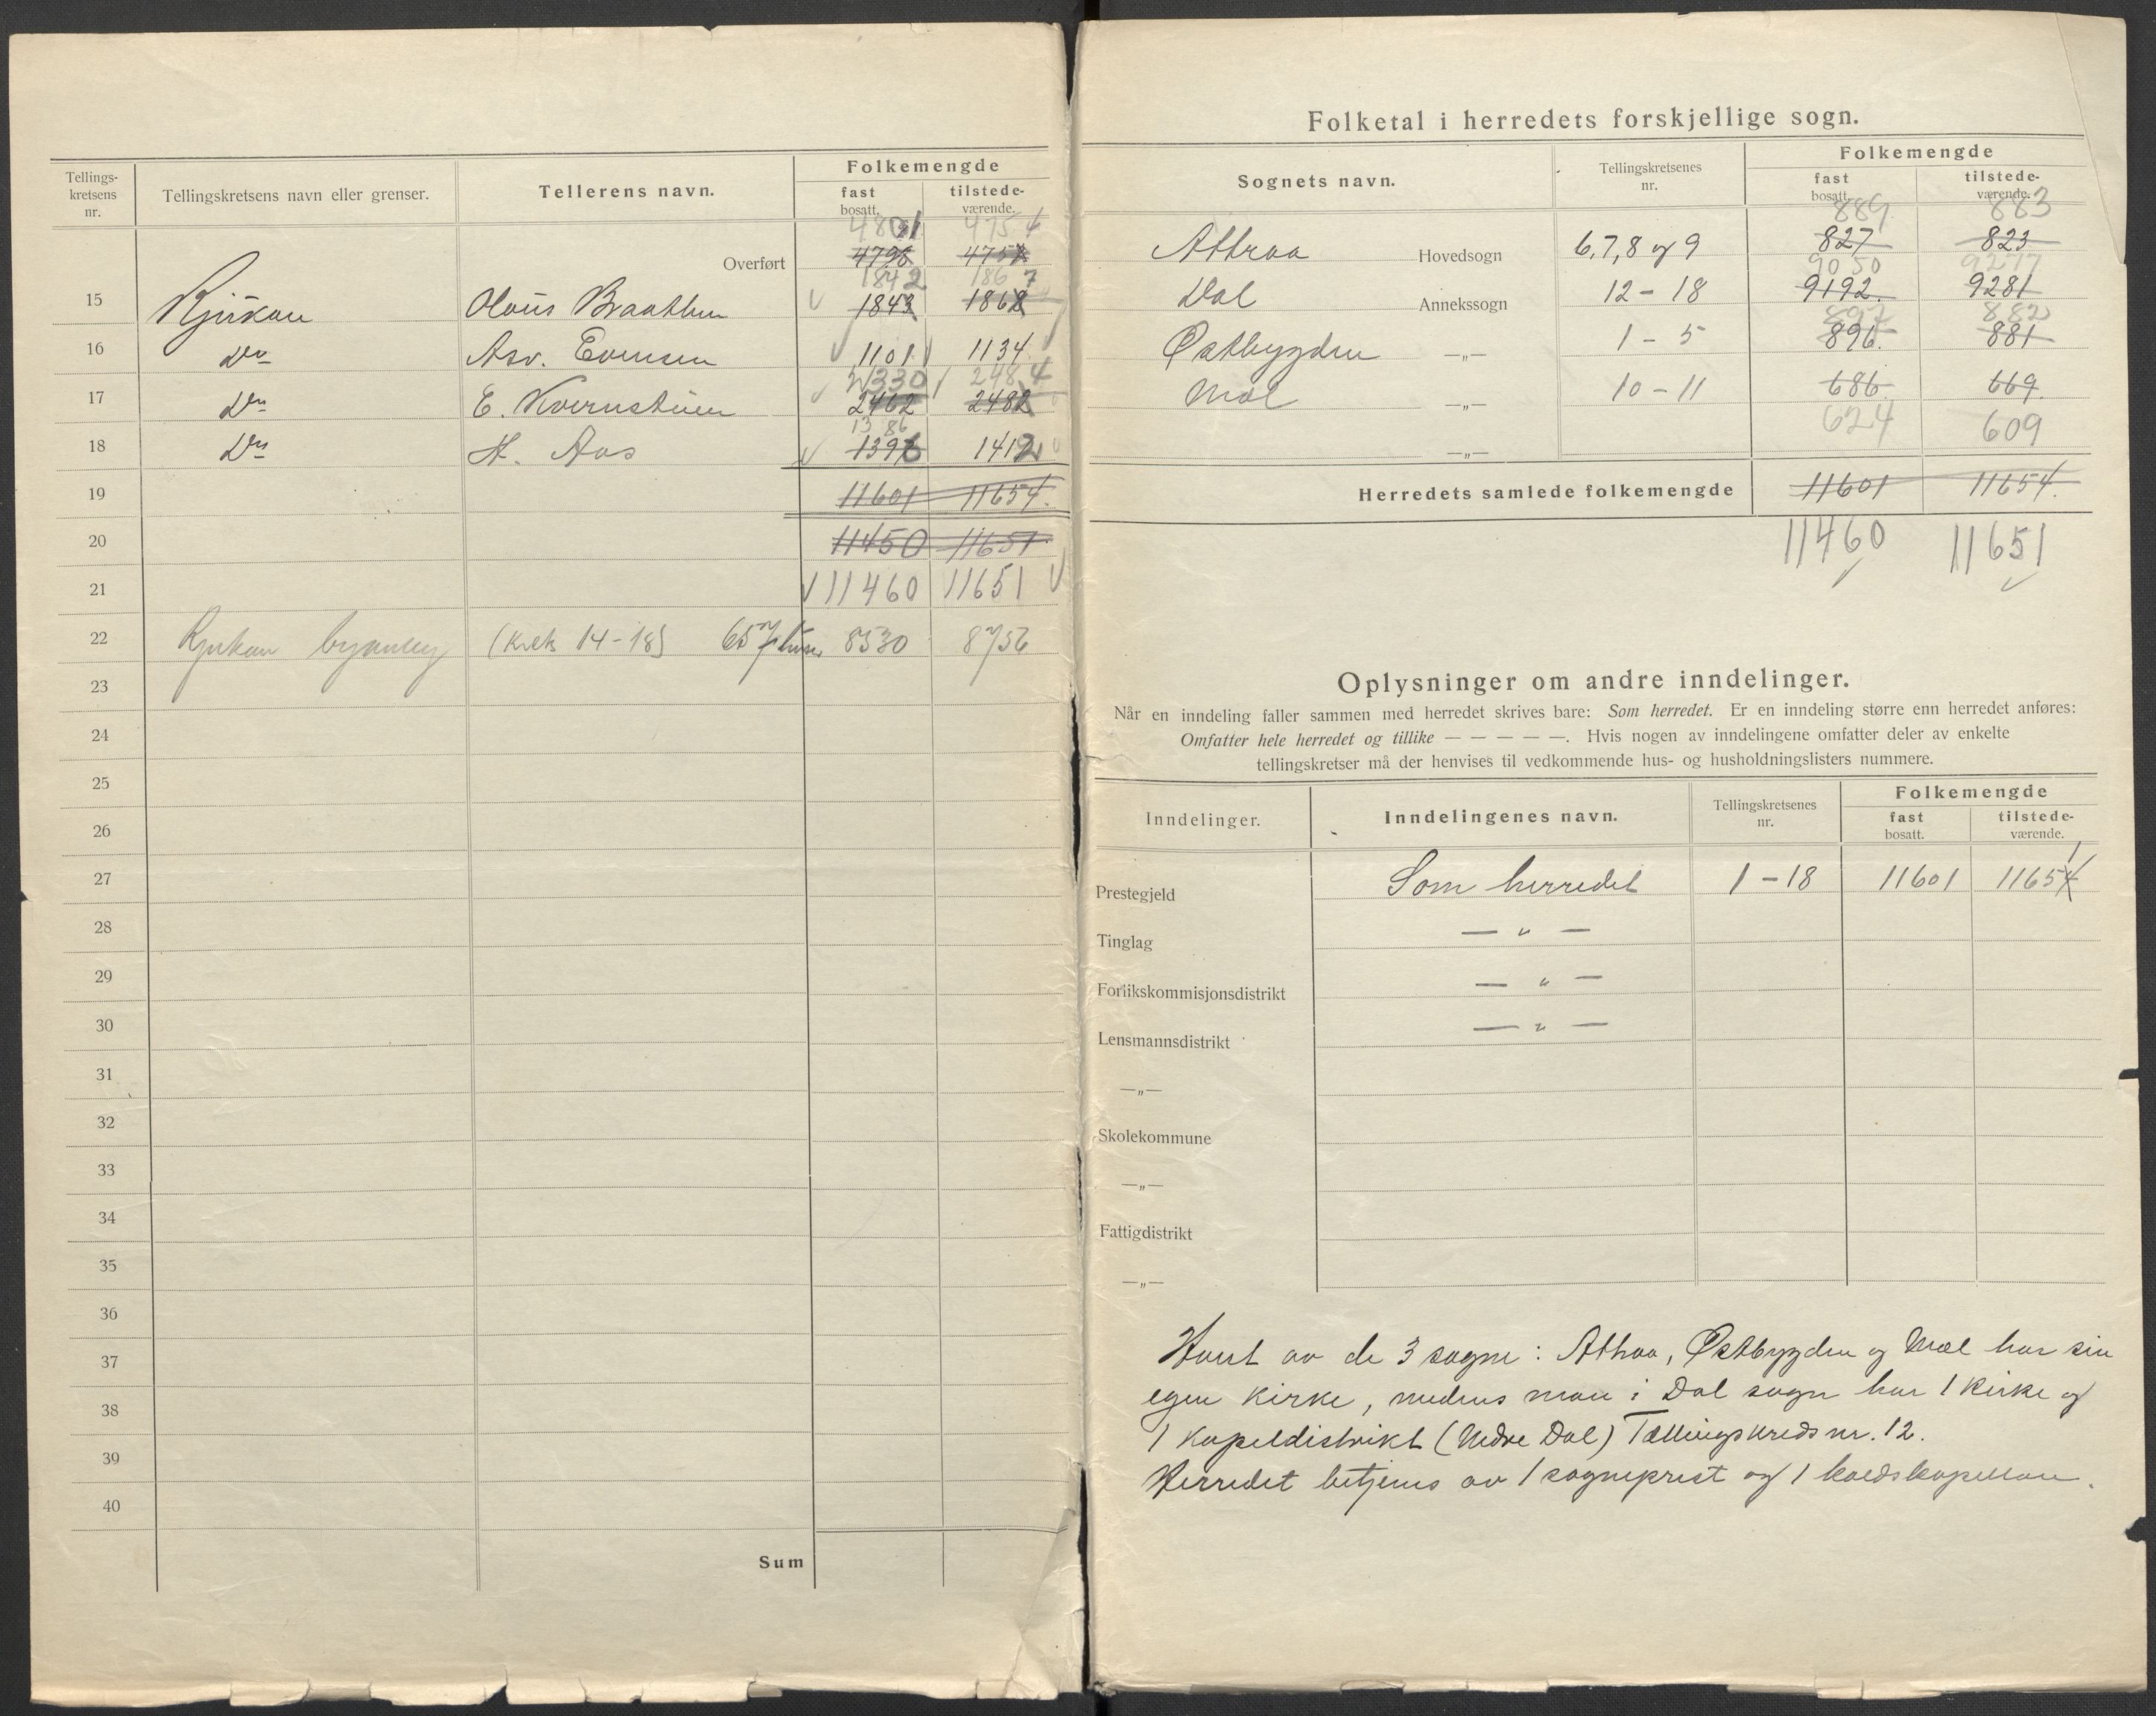 Tellings-
kretsens
nr.
Tellingskretsens navn eller grenser.
Tellerens navn.
Folkemengde
fast
bosatt.
tilstede-
værende.
4801 4754
Overført 4798 4757
1842 1867
15 Rjukan Olaus Braathen 1843 1868
16 Do Asv. Evensen 1101 1134
2330 2484
17 Do E. Kvernstuen 2462 2482
1386
18 Do H. Aas 1396 1412
19 11601 11654.
20 11450 11651
21 11460 11651
22 Rjukan (krets 14-18) 657 hus 8530 8756
23
24
25
26
27
28
29
30
31
32
33
34
35
36
37
38
39
40
Sum
Folketal i herredets forskjellige sogn.
Sognets navn.
Tellingskretsenes
nr.
Folkemengde
fast
bosatt.
tilstede-
værende.
889 883
Attraa Hovedsogn 6,7,8 og 9 827 823
9050 9277
Dal Annekssogn 12-18 9192. 9281
897 882
Østbygden —„— 1-5 896. 881
Mæl —„— 10-11 686 669.
624 609
—„—
Herredets samlede folkemengde 11601 11654.
11460 11651
Oplysninger om andre inndelinger.
Når en inndeling faller sammen med herredet skrives bare: Som herredet. Er en inndeling større enn herredet anføres:
Omfatter hele herredet og tillike — — — — —. Hvis nogen av inndelingene omfatter deler av enkelte
tellingskretser må der henvises til vedkommende hus- og husholdningslisters nummere.
Inndelinger.
Inndelingenes navn.
Tellingskretsenes
nr.
Folkemengde
fast
bosatt.
tilstede-
værende.
1
Prestegjeld Som herredet 1-18 11601 11654
Tinglag — „ —
Forlikskommisjonsdistrikt — „ —
Lensmannsdistrikt — „ —
—„—
Skolekommune
—„—
Fattigdistrikt
—„—
Hvert av de 3 sogne: Attraa, Østbygden og Mæl har sin
egen kirke, medens man i Dal sogn har 1 kirke og
1 kapeldistrikt (Nedre Dal) Tællingskreds nr. 12.
Herredet betjenes av 1 sogneprest og 1